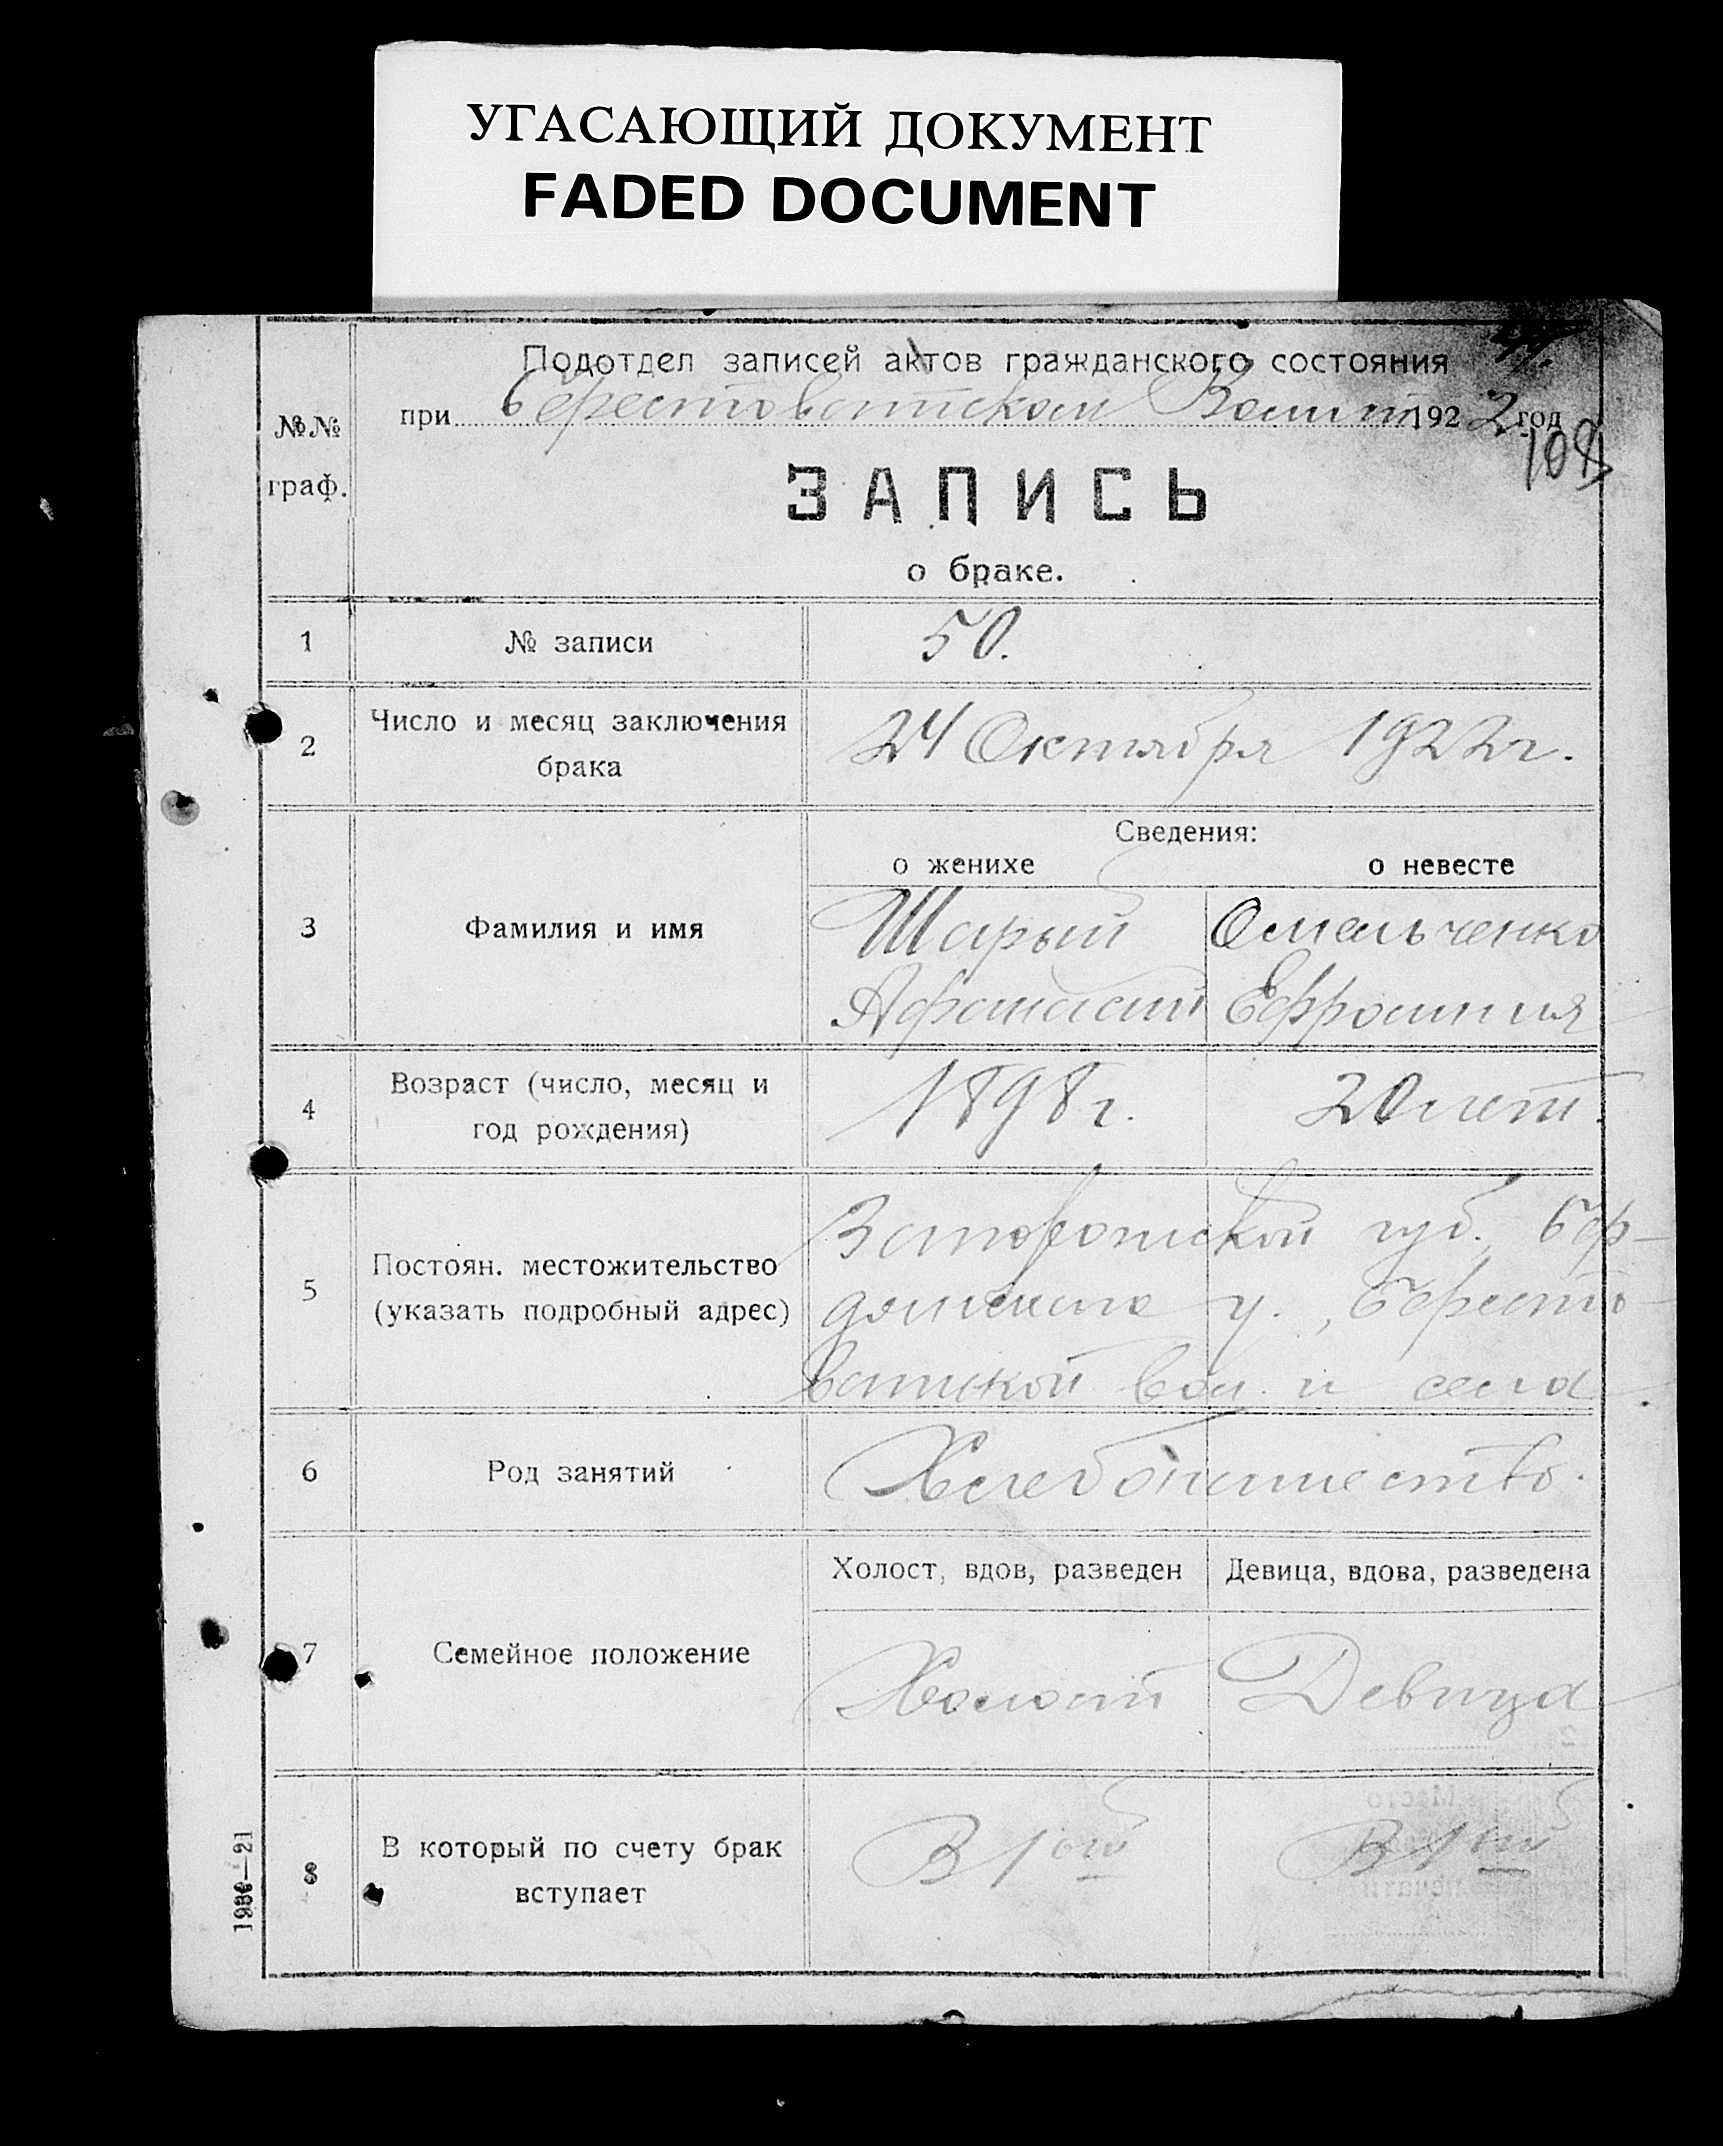 УГАСАЮЩИЙ ДОКУМЕНТ
FADED DOCUMENT
Подотдел записей актов гражданского состояния
при Берестоватском Волисп. 1922 год
109
№№
граф.
ЗАПИСЬ
о браке.
1 № записи 50.
2 Число и месяц заключения
брака
24 Октября 1922 г.
Сведения:
о женихе о невесте
3 Фамилия и имя
Шарый Омельченко
Афанасий Ефросиния
4 Возраст (число, месяц и
год рождения)
1898 г. 20 лет.
5 Постоян. местожительство
(указать подробный адрес)
Запорожской губ., Бер-
дянского у., Бересто-
ватской вол. и села
6 Род занятий Хлебопашество.
Холост, вдов, разведен Девица, вдова, разведена
7 Семейное положение
Холост Девица
8 В который по счету брак
вступает
В 1ый В 1ый